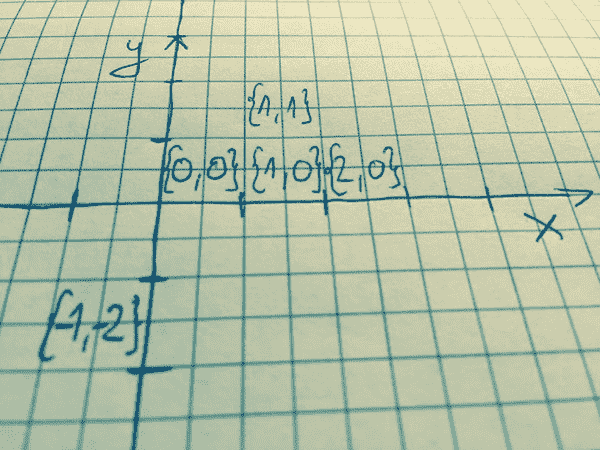 y
{1,1}
{0,0} {1,0} {2,0}
x
{-1,-2}